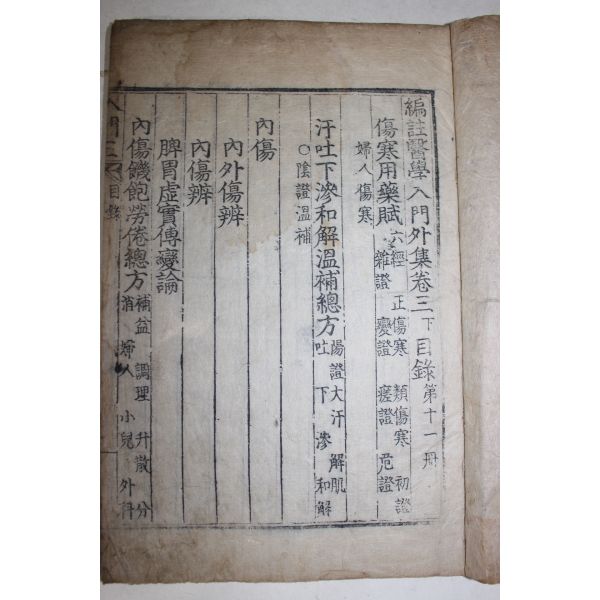 編註醫學入門外集卷三下目錄 第十一冊
傷寒用藥賦 六經 正傷寒 類傷寒 初證
雜證 變證 瘥證 危證
婦人傷寒
汗吐下滲和解溫補總方 陽證 大汗 解肌
吐 下 滲 和解
○陰證溫補
內傷
內外傷辨
內傷辨
脾胃虛實傳變論
內傷饑飽勞倦總方 補益 調理 升散 分
消 婦人 小兒 外科
入門三 目錄